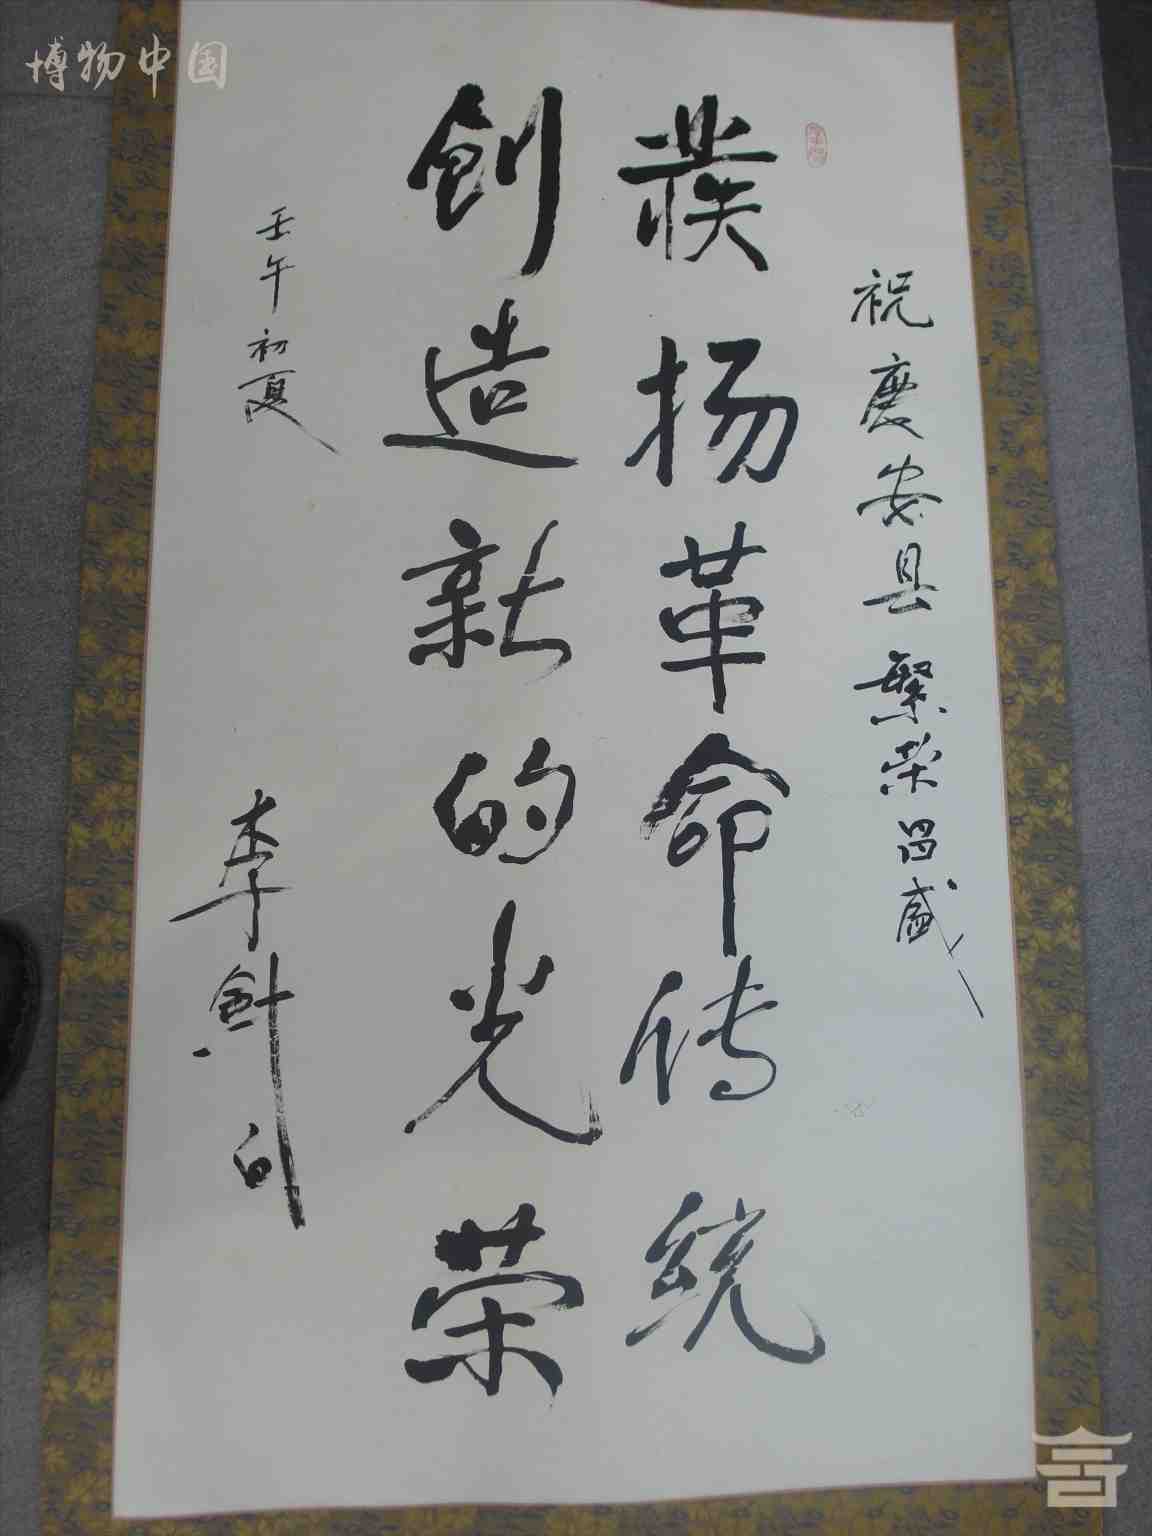 博物中国
祝慶安县繁荣昌盛
發扬革命传统
創造新的光荣
壬午初夏
李剑白